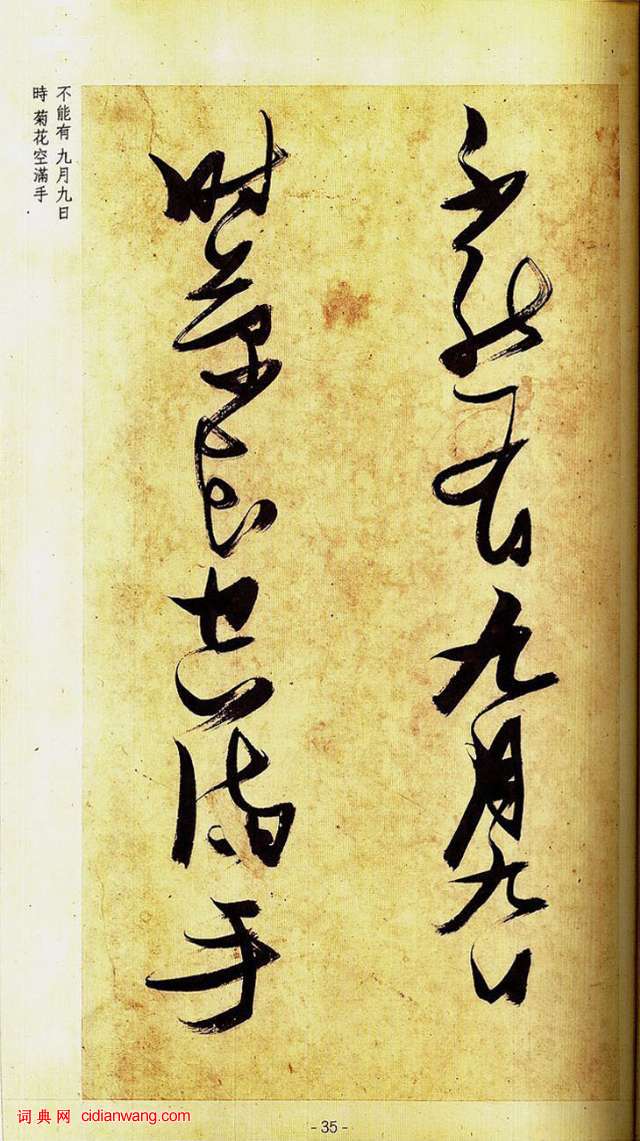 不能有九月九日
時菊花空滿手
不能有 九月九日
時 菊花空滿手
词典网 cidianwang.com
- 35 -